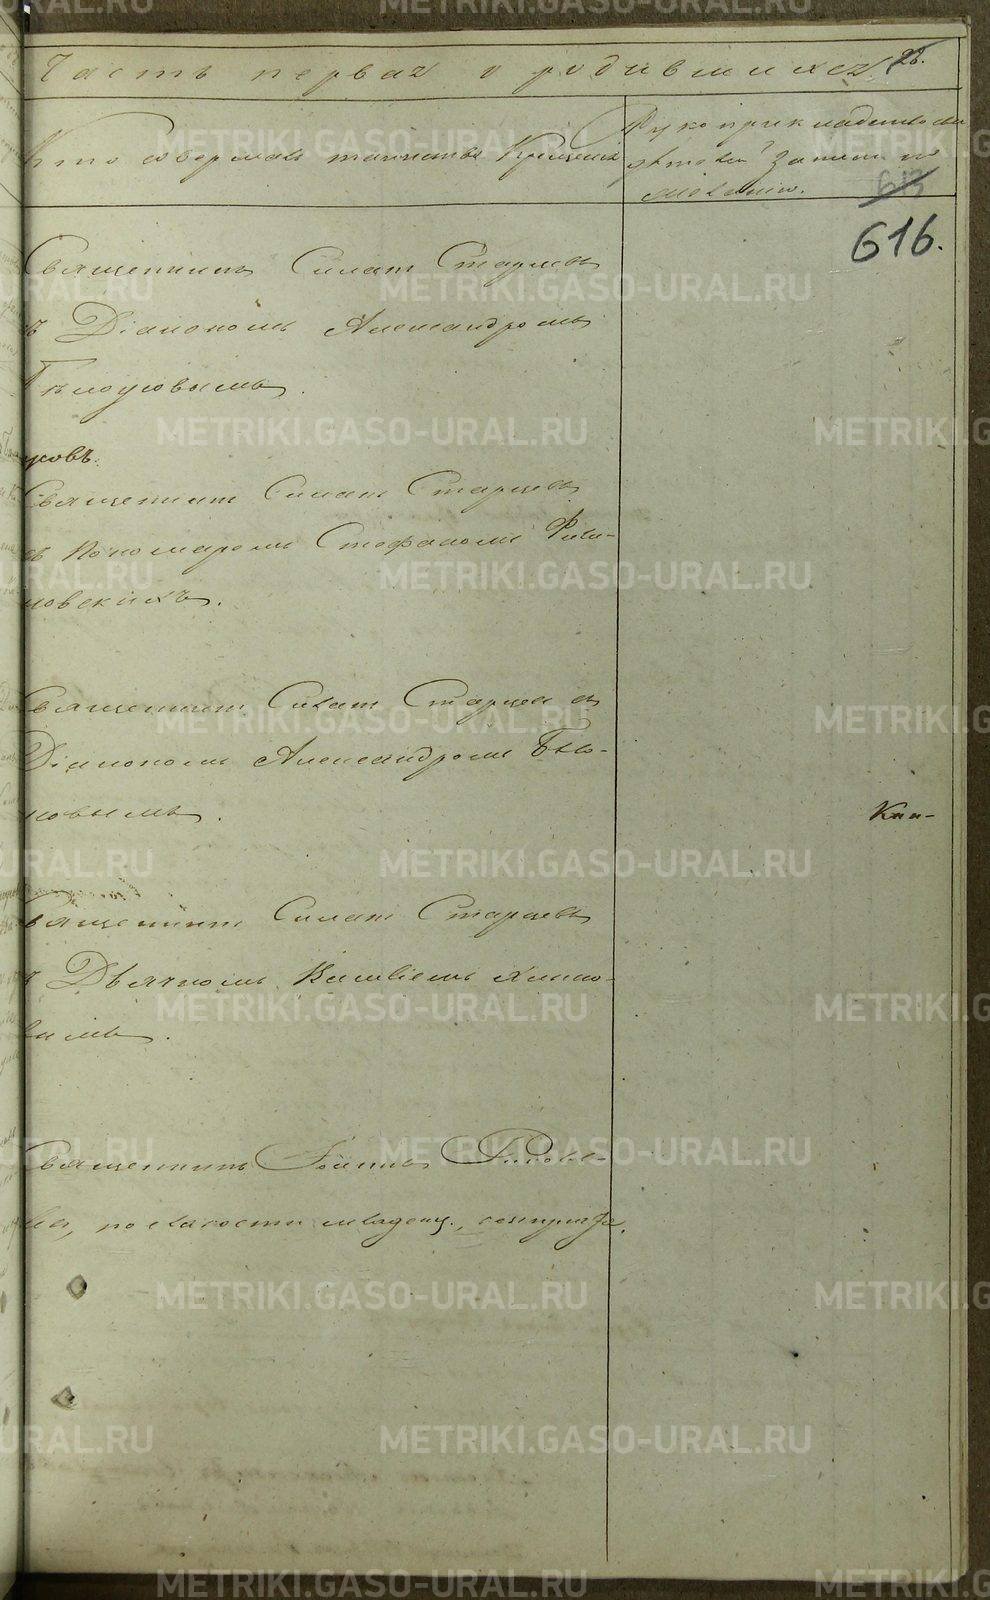 Часть первая о родившихся. 28.
Кто совершалъ таинство Крещенія
Рукоприкладство сви
дѣтелей записи по
желанію.
613
616.
Священникъ Силантій Старцевъ
съ Діакономъ Александромъ
Бѣлоусовымъ.
усовъ.
Священникъ Старцевъ
съ Пономаремъ Стефаномъ
новскихъ.
Священникъ Старцевъ съ
Діакономъ Александромъ Бѣло-
усовымъ.
Священникъ Старцевъ
съ Дьячкомъ
вымъ.
Кни-
Священникъ Іоаннъ
ва, по слабости младенц.,
METRIKI.GASO-URAL.RU